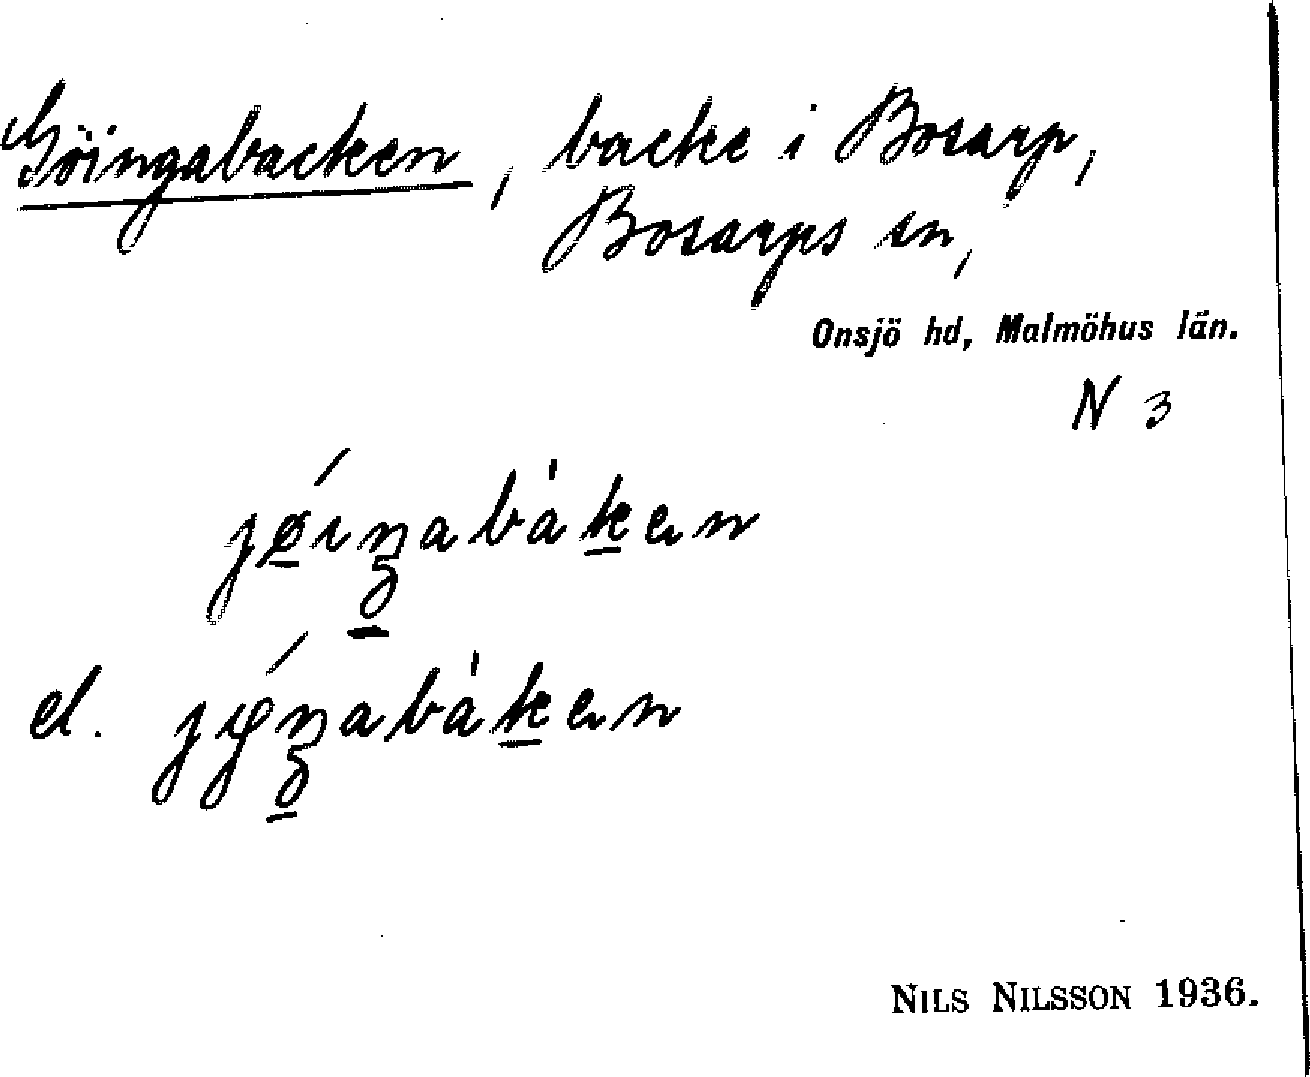 Göingabacken, backe i Bosarp,
Bosarps sn,
Onsjö hd, Malmöhus län.
N 3
jǿıŋabàkən
el. jýŋabàkən
NILS NILSSON 1936.